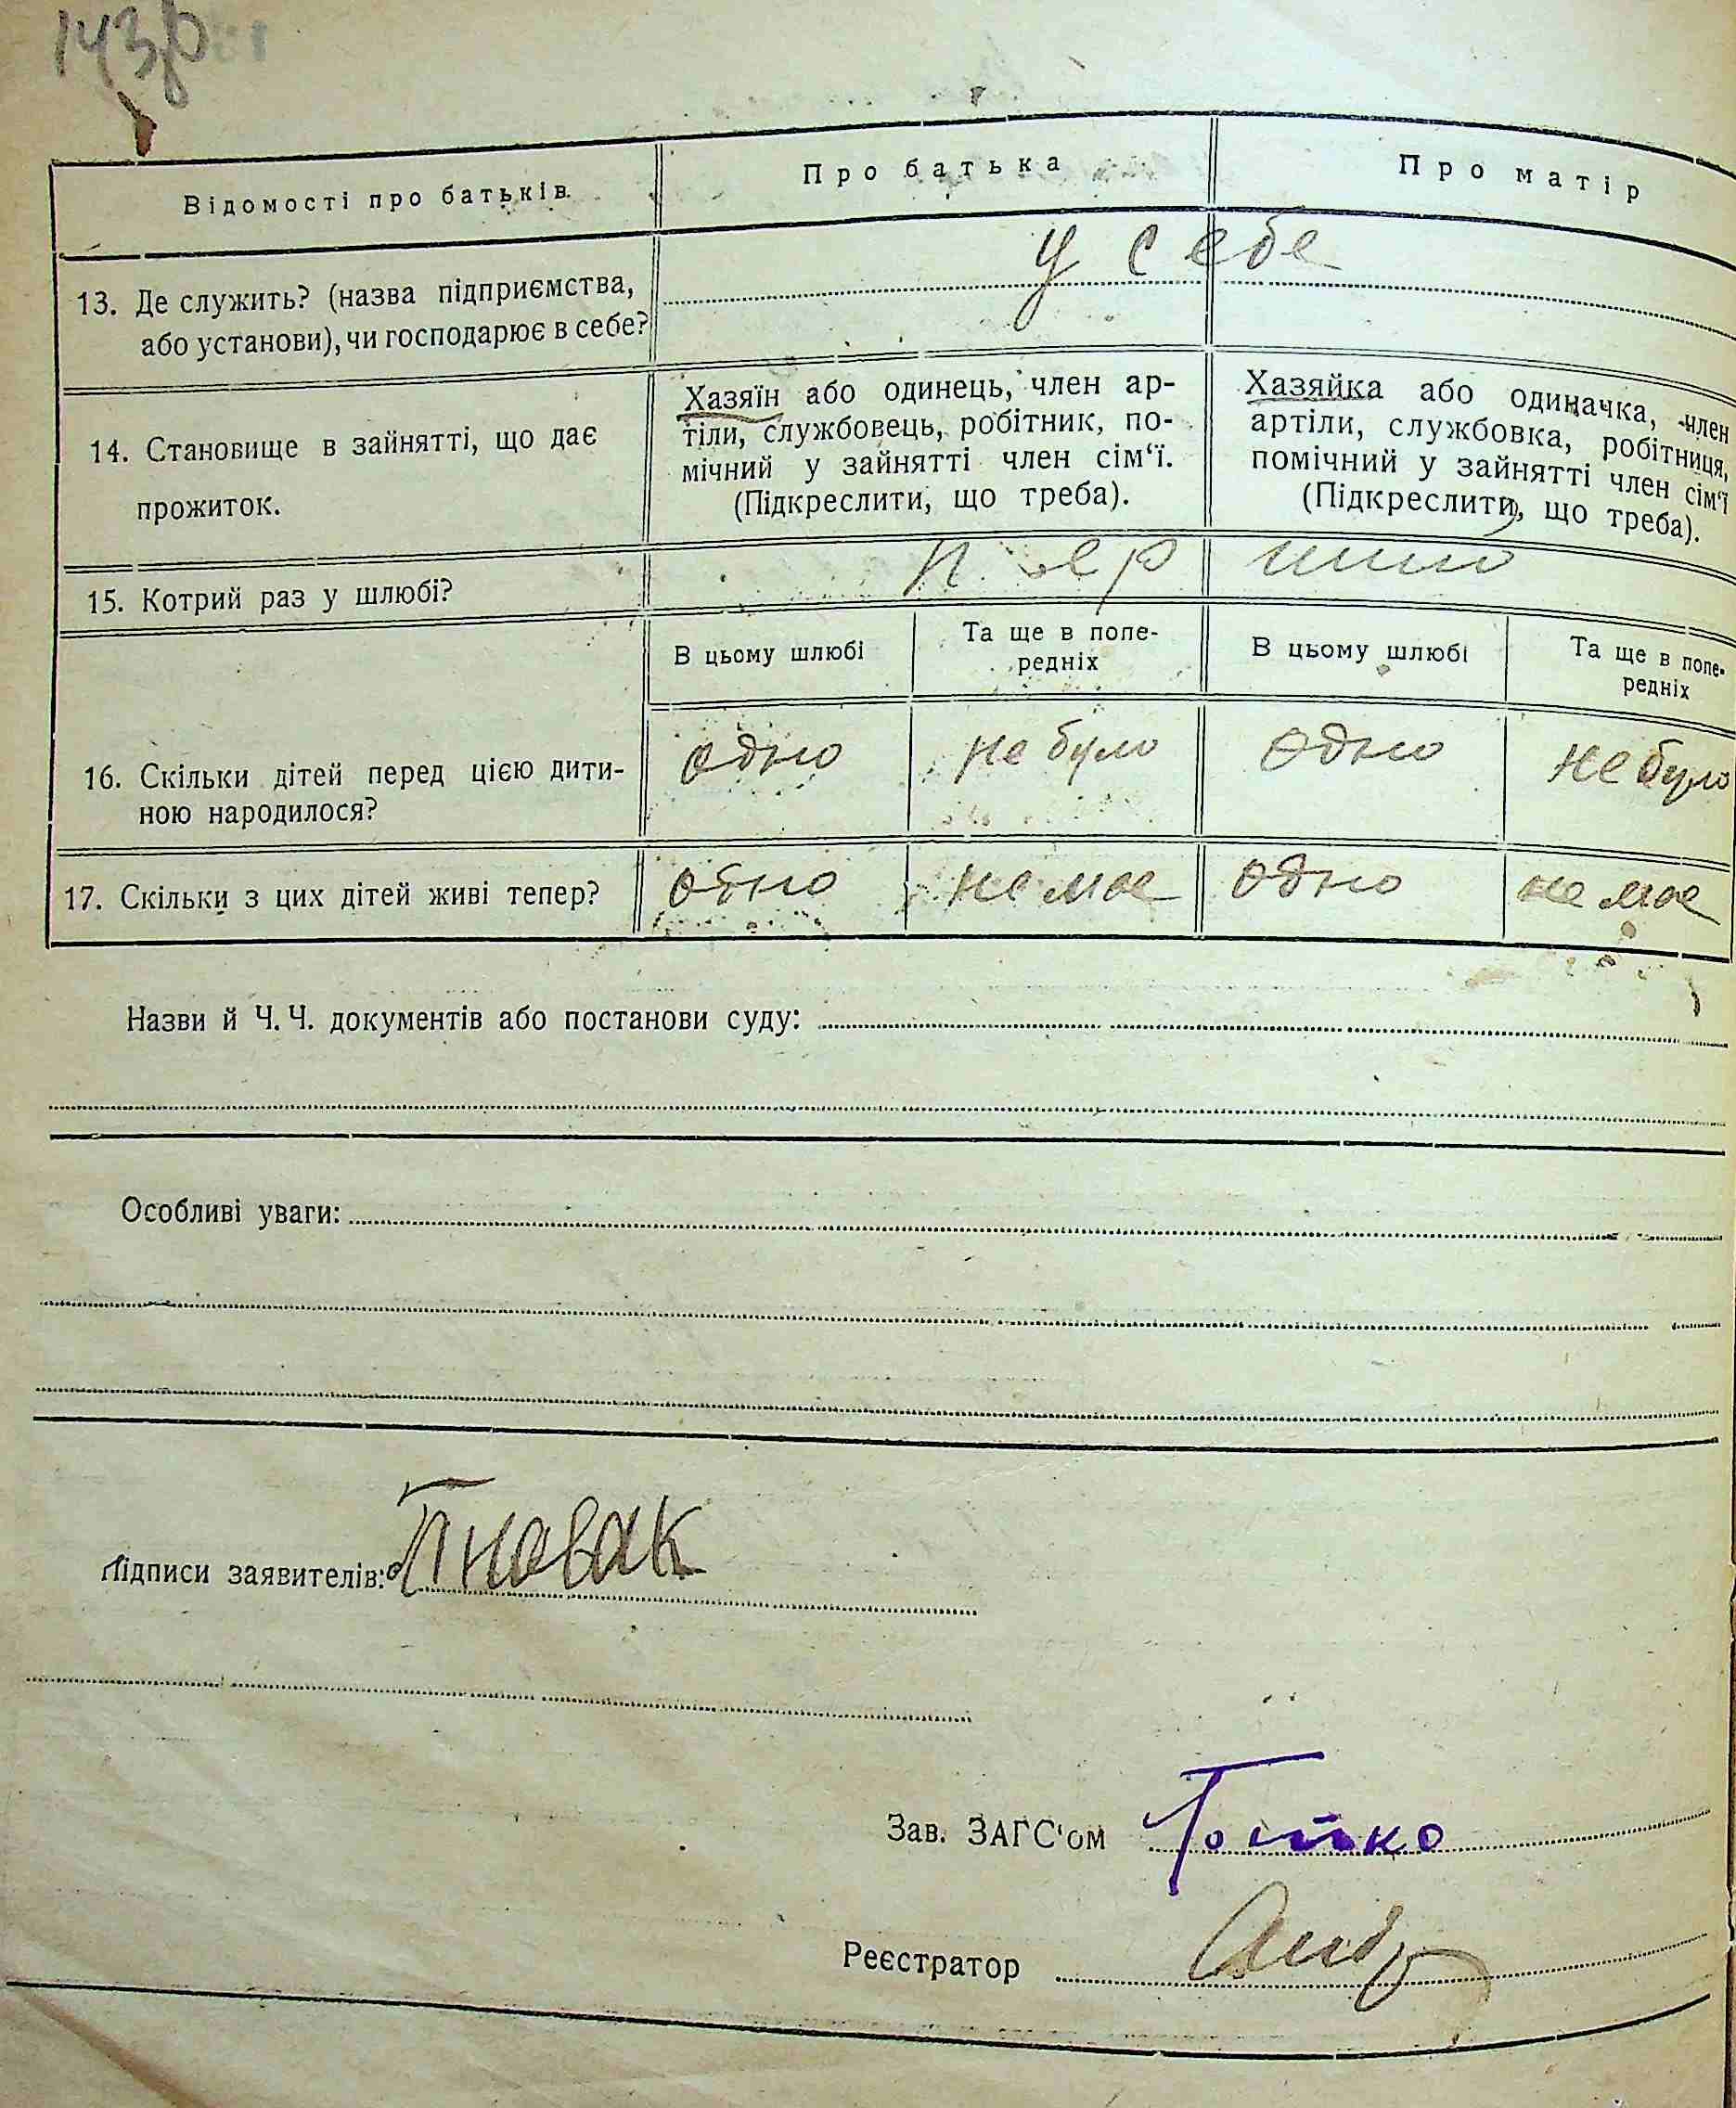 143
Відомості про батьків. Про батька Про матір
13. Де служить? (назва підприємства,
або установи), чи господарює в себе?
у себе
14. Становище в зайнятті, що дає
прожиток.
Хазяїн або одинець, член ар-
тіли, службовець, робітник, по-
мічний у зайнятті член сім‘ї.
(Підкреслити, що треба).
Хазяйка або одиначка, член
артіли, службовка, робітниця,
помічний у зайнятті член сім‘ї
(Підкреслити, що треба).
15. Котрий раз у шлюбі?
В цьому шлюбі
Та ще в попе-
редніх
В цьому шлюбі
Та ще в попе-
редніх
16. Скільки дітей перед цією дити-
ною народилося?
одно не було одно не було
17. Скільки з цих дітей живі тепер? одно немає одно немає
Назви й Ч. Ч. документів або постанови суду:
Особливі уваги:
Підписи заявителів: Новак
Зав. ЗАГС‘ом
Реєстратор